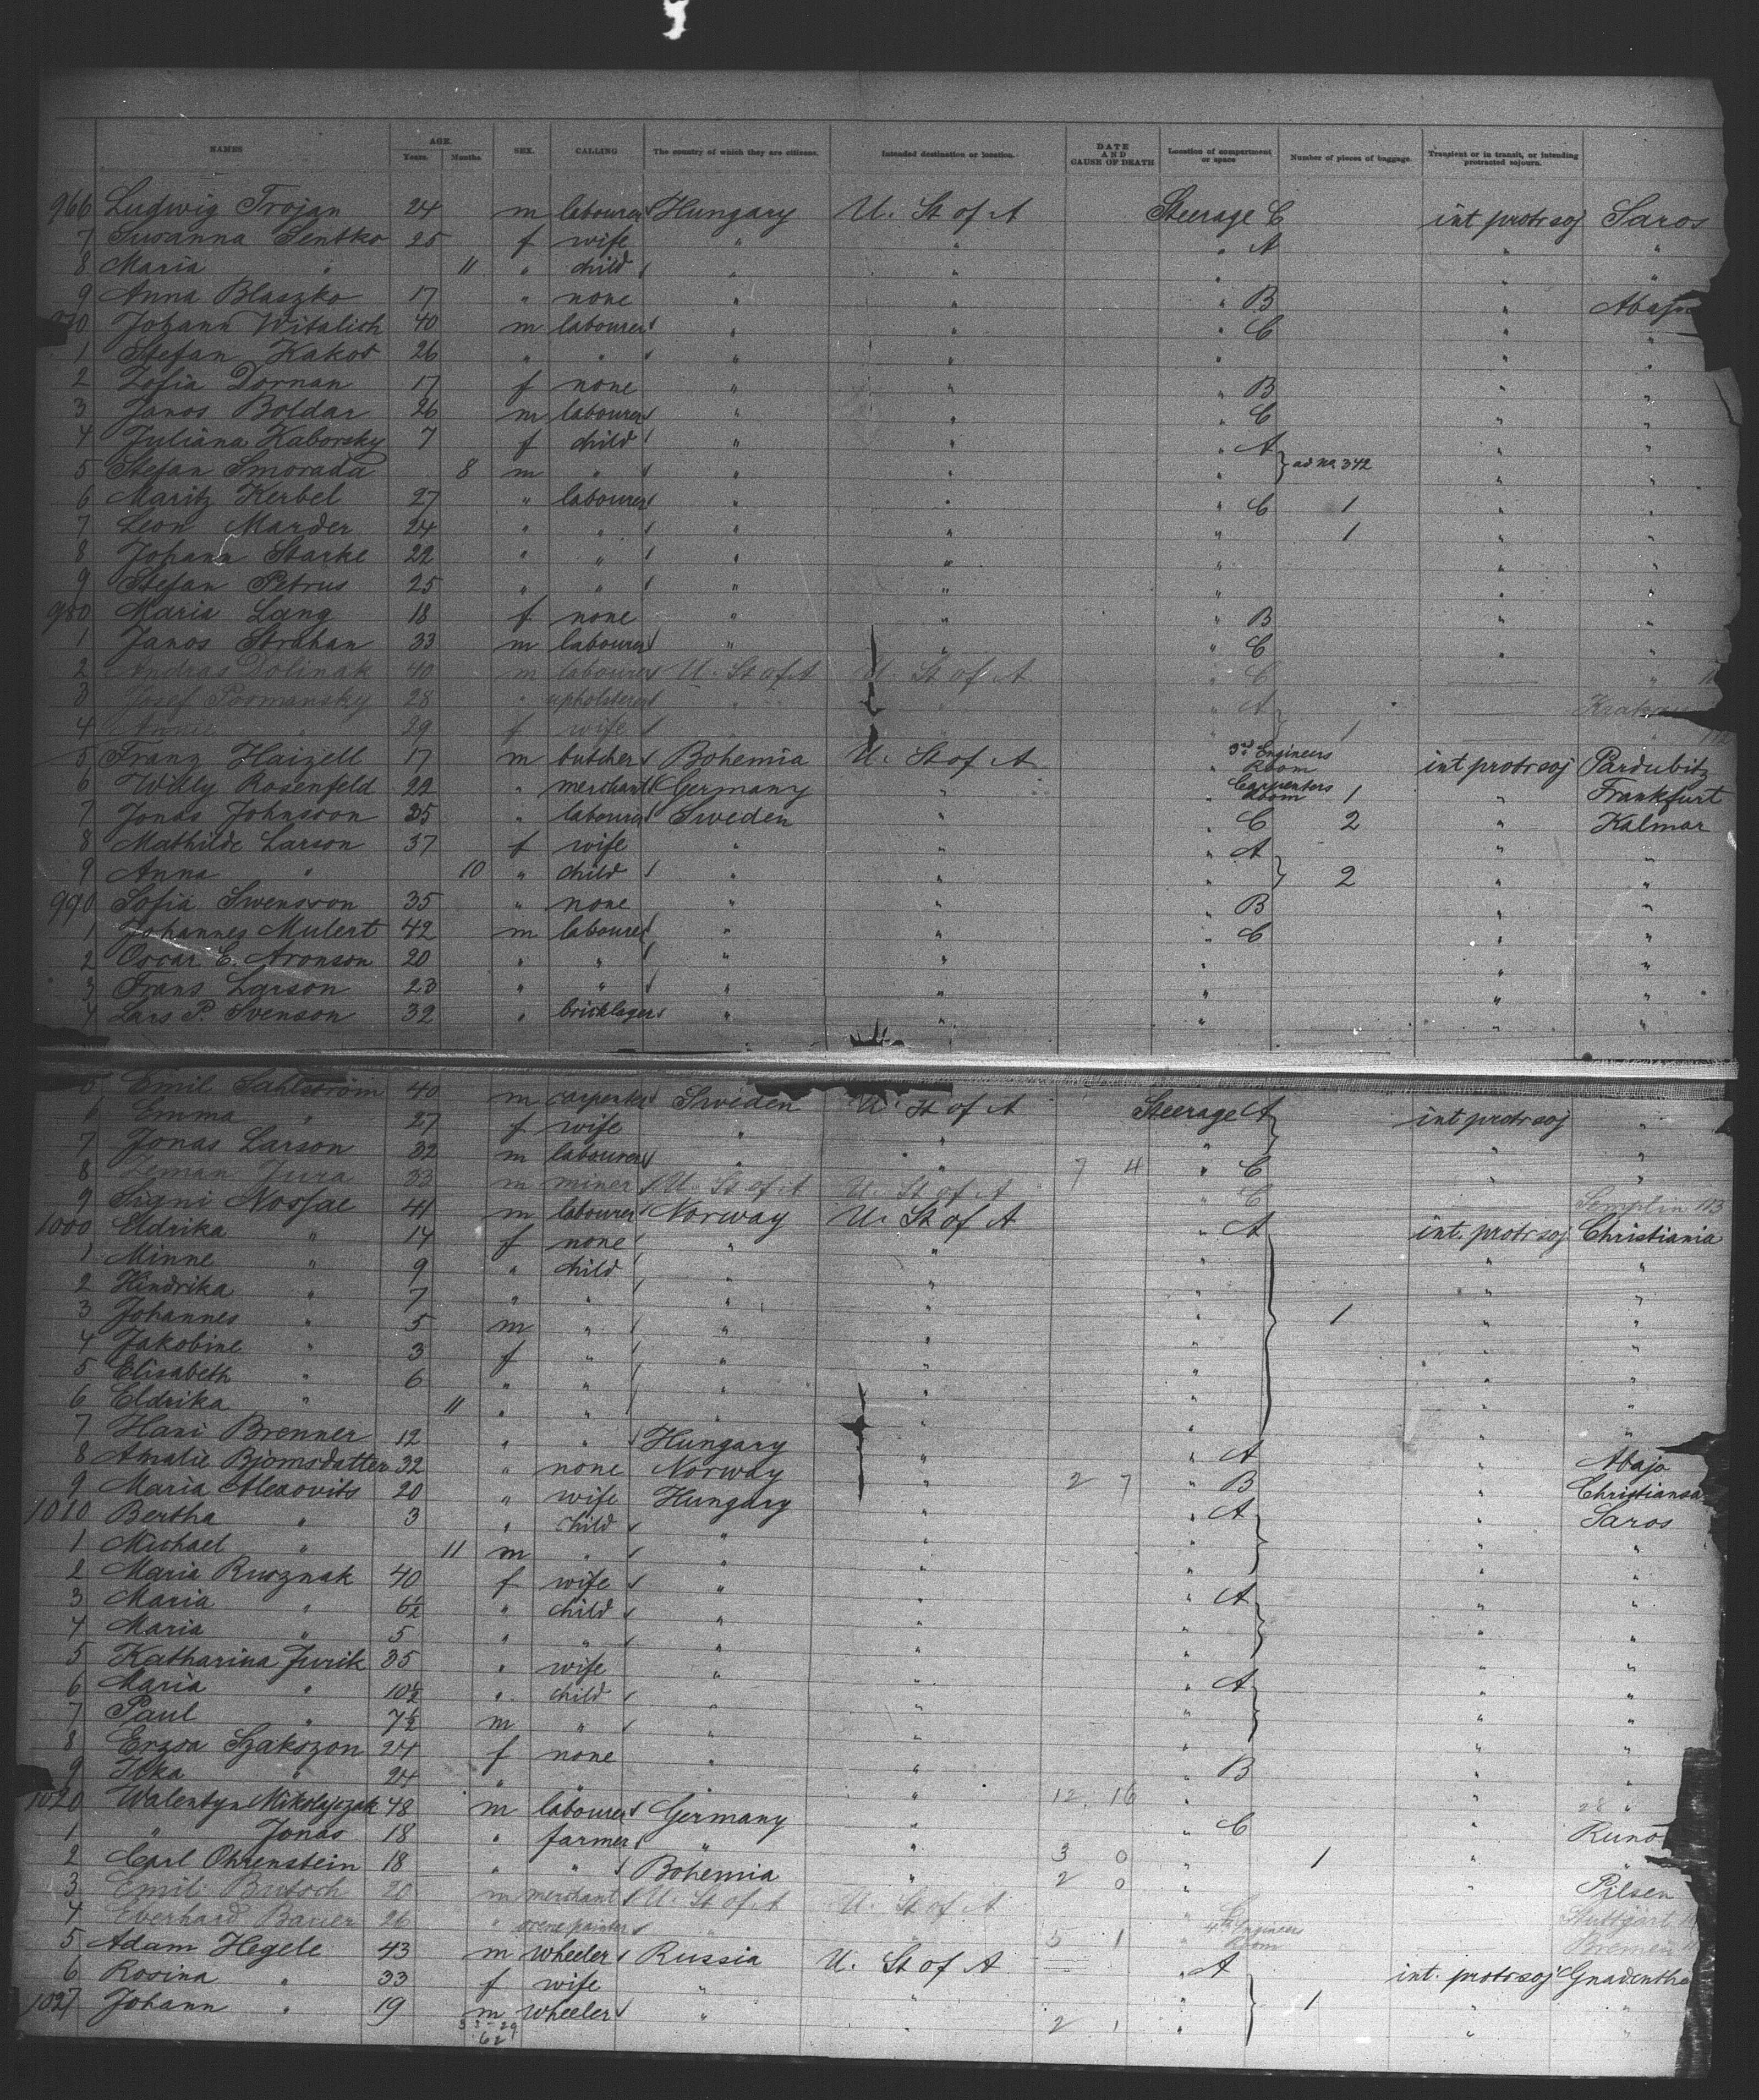 NAMES AGE. Years. Months. SEX. CALLING The country of which they are citizens. Intended destination or location. DATE AND CAUSE OF DEATH Location of compartment or space Number of pieces of baggage. Transient or in transit, or intending protracted sojourn.
966 Ludwig Trojan 24 m labourer Hungary U. St of A Steerage C int protr soj Saros
7 Susanna Sentko 25 f wife " " " A " "
8 Maria " 11 " child " " " " "
9 Anna Blaszko 17 " none " " " B "
970 Johann Witalich 40 m labourer " " " C " "
1 Stefan Kakos 26 " " " " " " "
2 Zofia Dornan 17 f none " " " B " "
3 Janos Boldar 26 m labourer " " " C " "
4 Juliana Kaborsky 7 f child " " " A " "
5 Stefan Smorada 8 m " " " " ad No 342 " "
6 Maritz Kerbel 27 " labourer " " " C 1 " "
7 Leon Marder 24 " " " " " 1 " "
8 Johann Starke 22 " " " " " " "
9 Stefan Petrus 25 " " " " " " "
980 Maria Lang 18 f none " " " B " "
1 Janos Strahan 33 m labourer " " " C " "
2 Andras Dolinak 40 m labourer U. St of A U. St of A " C "
3 Josef Posmansky 28 " upholsterer " " " A
4 " 29 f wife " " " 1 "
5 Franz Haizell 17 m butcher Bohemia U. St of A " 3rd Engineers Room int protr soj Pardubitz
6 Willy Rosenfeld 22 " merchant Germany " " Carpenters Room 1 " Frankfurt
7 Jonas Johnsson 35 " labourer Sweden " " C 2 " Kalmar
8 Mathilde Larson 37 f wife " " " A " "
9 Anna " 10 " child " " " 2 " "
990 Sofia Swensson 35 " none " " " B " "
1 Johannes Mulert 42 m labourer " " " C " "
2 Oscar E. Aronson 20 " " " " " " "
3 Frans Larson 23 " " " " " " "
4 Lars P. Svenson 32 " bricklager " " " " "
5 Emil Sahlström 40 m carpenter Sweden U. St of A Steerage A int protr soj "
6 Emma " 27 f wife " " " " "
7 Jonas Larson 32 m labourer " " 7 4 " C " "
8 Zeman Jura 33 m miner U. St of A U. St of A " C Semplin 113
9 Signi Nosfae 41 m labourer Norway U. St of A " A int. protr soj Christiania
1000 Eldrika " 14 f none " " " " "
1 Minne " 9 " child " " " " "
2 Hindrika " 7 " " " " " " "
3 Johannes " 5 m " " " " 1 " "
4 Jakobine " 3 f " " " " " "
5 Elisabeth " 6 " " " " " " "
6 Eldrika " 11 " " " " " " "
7 Hani Brenner 12 " " Hungary " " A " Abajo
8 Amalie Bjornsdatter 32 " none Norway " 2 7 " B "
9 Maria Alexovits 20 " wife Hungary " " A " Saros
1010 Bertha " 3 " child " " " " "
1 Michael " 11 m " " " " " "
2 Maria Rusznak 40 f wife " " " A " "
3 Maria " 6½ " child " " " " "
4 Maria " 5 " " " " " " "
5 Katharina Jurik 35 " wife " " " A " "
6 Maria " 10½ " child " " " " "
7 Paul " 7½ m " " " " " "
8 Erzsa Szakszon 24 f none " " " B " "
9 Ilka " 24 " " " " " " "
1020 Walentyn Mikolajczak 48 m labourer Germany " 12 16 " C "
1 " Jonas 18 " farmer " " 3 0 " 1 " "
2 Carl Ohrenstein 18 " " Bohemia " 2 0 " " Pilsen
3 Emil Butsch 20 m merchant U. St of A U. St of A " C Stuttgart
4 Eberhard Bauer 26 " scene painter " " 5 1 " 4th Engineer Room Bremen
5 Adam Hegele 43 m wheeler Russia U. St of A " A int. protr soj
6 Rosina " 33 f wife " " " 1 " "
1027 Johann " 19 m wheeler " " 2 1 " " "
33 - 29
62